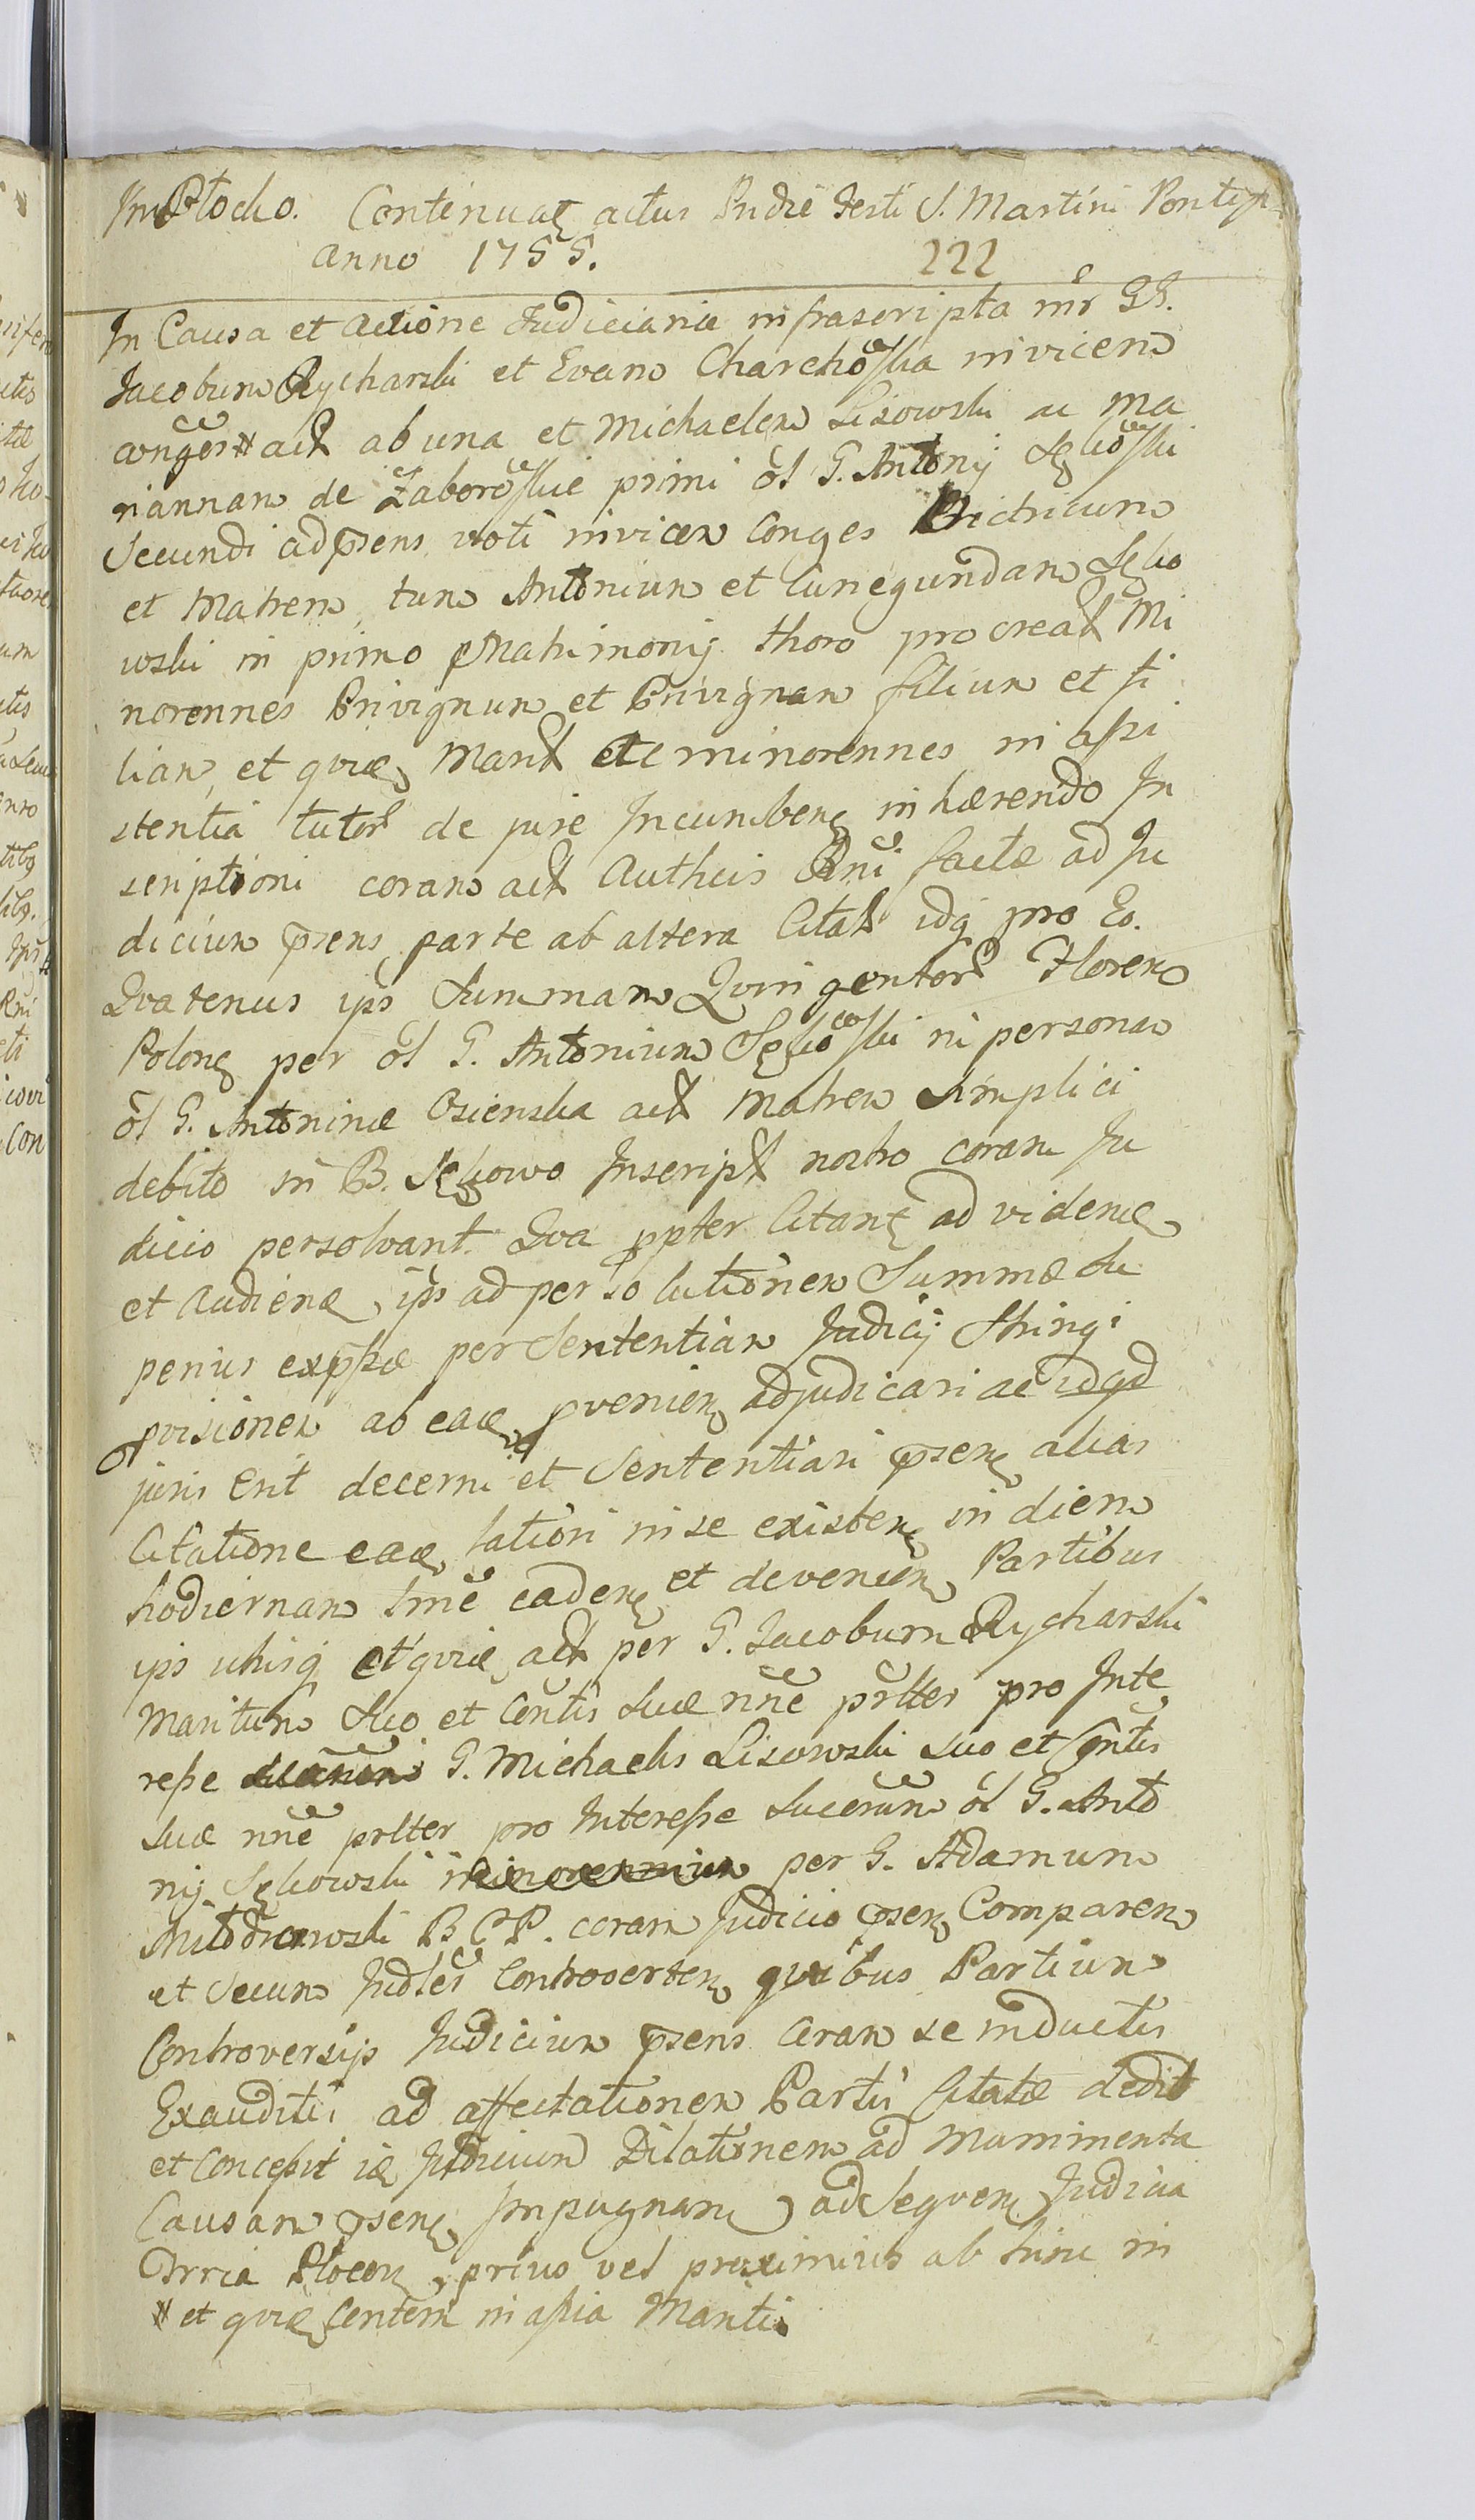 In Płocko. Continuaõ actus Pridie Festi S. Martini Pontif
Anno 1755. 222
In Causa et Actione Judiciaria infrascripta intr GG.
Jacobum Rycharski et Evam Charchoska invicem
conges # act ab una et Michaelem Lisowski ac Ma
riannam de Zaboroskie primi ol G. Antonij Sękoski
Secundi ad psens voti invicem Conges Victricum
et Matrem, tum Antonium et Cunegundam Sęko
wski in primo Matrimonij thoro procreat Mi
norennes Privignum et Privignam filium et fi
liam, et quie Marit ete minorennes in assi
stentia tutor de jure Incumben inhaerendo In
scriptioni coram act Authcis Rni factae ad Ju
dicium psens parte ab altera Citat idq pro Eo.
Quatenus ips Summam Quingentor Floren
Polon per ol G. Antonium Sękoski in personam
ol G. Antoninae Osienska act Matrem simplici
debito in B. Sękowo Inscript nostro coram Ju
dicio persolvant. Qua ppter Citant ad viden
et Audien, ips ad persolutionem Summae Su
perius expssae per Sententiam Judicij Stringi
pvisionem ab eae pvenien adjudicari ac idqd
juris erit decerni et Sententiari psen alias
Citatione eae latiori in se existen in diem
hodiernam tme caden et devenien Partibus
ips utrisq et quie act per G. Jacobum Rycharski
Maritum Suo et Contis Suae nne prlter pro Inte
resse G. Michaelis Lisowski suo et Contis
Suae nne prlter pro Interesse Succerum ol G. Anto
nij Sękowski per G. Adamum
Młodzianowski B C P. coram Judicio psen Comparen
et Secum Judler Controverten quibus Partium
Controversijs Judicium psens Coram se inductis
Exauditis ad affectationem Partis Citatae dedit
et Concessit ie Judicium Dilationem ad Munimenta
Causam psen Impugnan ad Sequen Judicia
Trria Plocen, prius vel proximius ab hinc in
# et quie Contem in assia Mariti